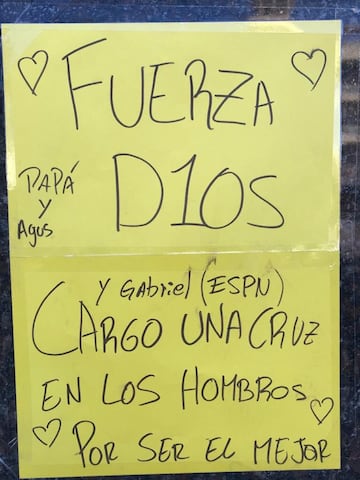 FUERZA
D1OS
PAPÁ
Y
Agus
Y GabrieL (ESPN)
CARGO UNA CRUZ
EN LOS HOMBROS
POR SER EL MEJOR